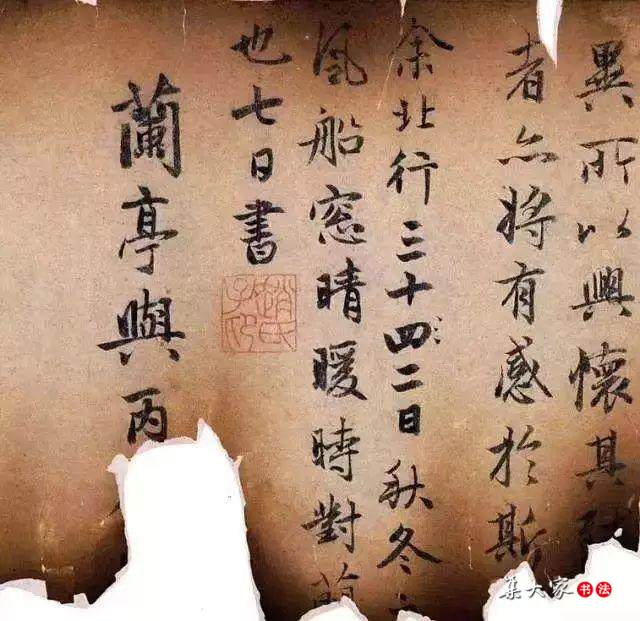 異所以興懷其
者亦將有感於斯
余北行三十四二日秋冬
風船窓晴暖時對蘭
也七日書
趙氏子昂
蘭亭與丙
集大家书法